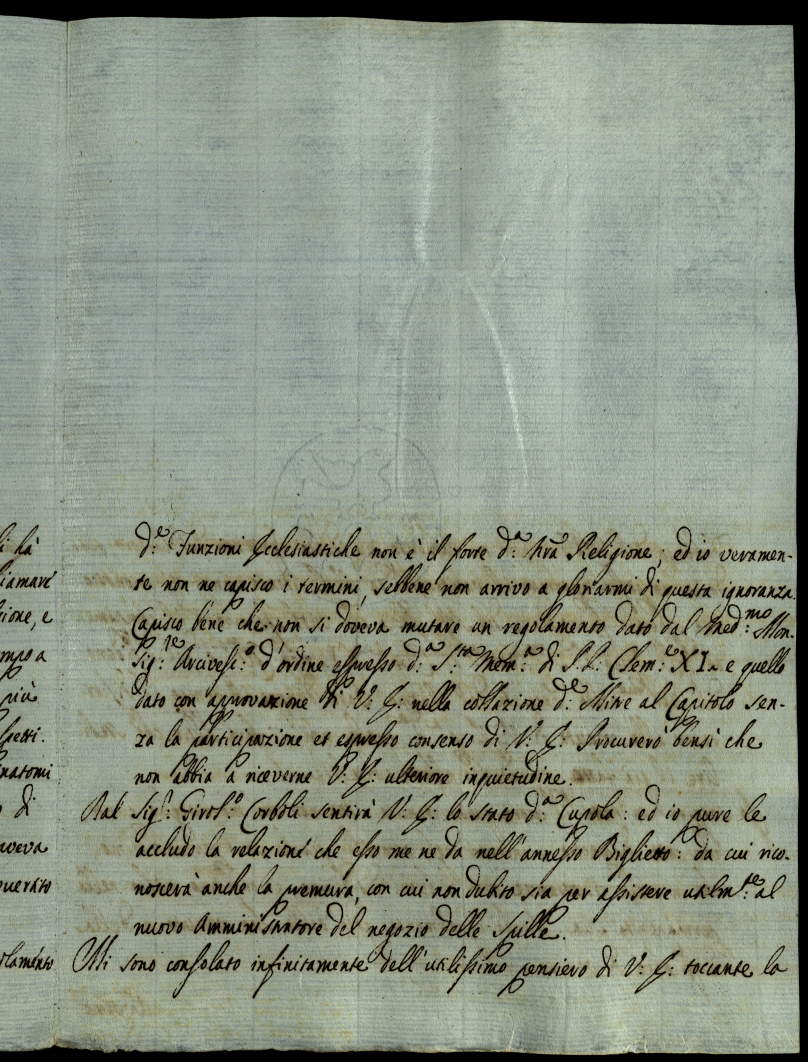 li hà
liamaré
sione, e
mpo a
più
spetti.
natomi
o di
aveva
querito
olaménto
d:ᵉ Funzioni Ecclesiastiche non è il forte d:ᵃ nrã Religione; ed io veramen-
te non ne capisco i termini, sebbene non arrivo a gloriarmi di questa ignoranza.
Capisco bene che non si doveva mutare un regolamento dato dal med:ᵐᵒ Mon-
sig:ʳᵉ Arcivesc:ᵒ d'ordine espresso d:ᵃ S:ᵗᵃ Mem:ᵃ di Clem:ᵉ XI. e quello
dato con approvazione di V: nella collazione d:ᵉ Mitre al Capitolo sen-
za la participazione et espresso consenso di V: Procurerò bensì che
non abbia à riceverne V: ulteriore inquietudine.
Dal Sig:ʳ Girol:ᵒ Corboli sentirà V: lo stato d:ᵃ Cupola: ed io pure le
accludo la relazione che esso me ne da nell'annesso Biglietto: da cui rico-
noscerà anche la premura, con cui non dubito sia per assistere utilm:ᵗᵉ al
nuovo Amministratore del negozio delle Spille.
Mi sono consolato infinitamente dell'utilissimo pensiero di V: toccante la